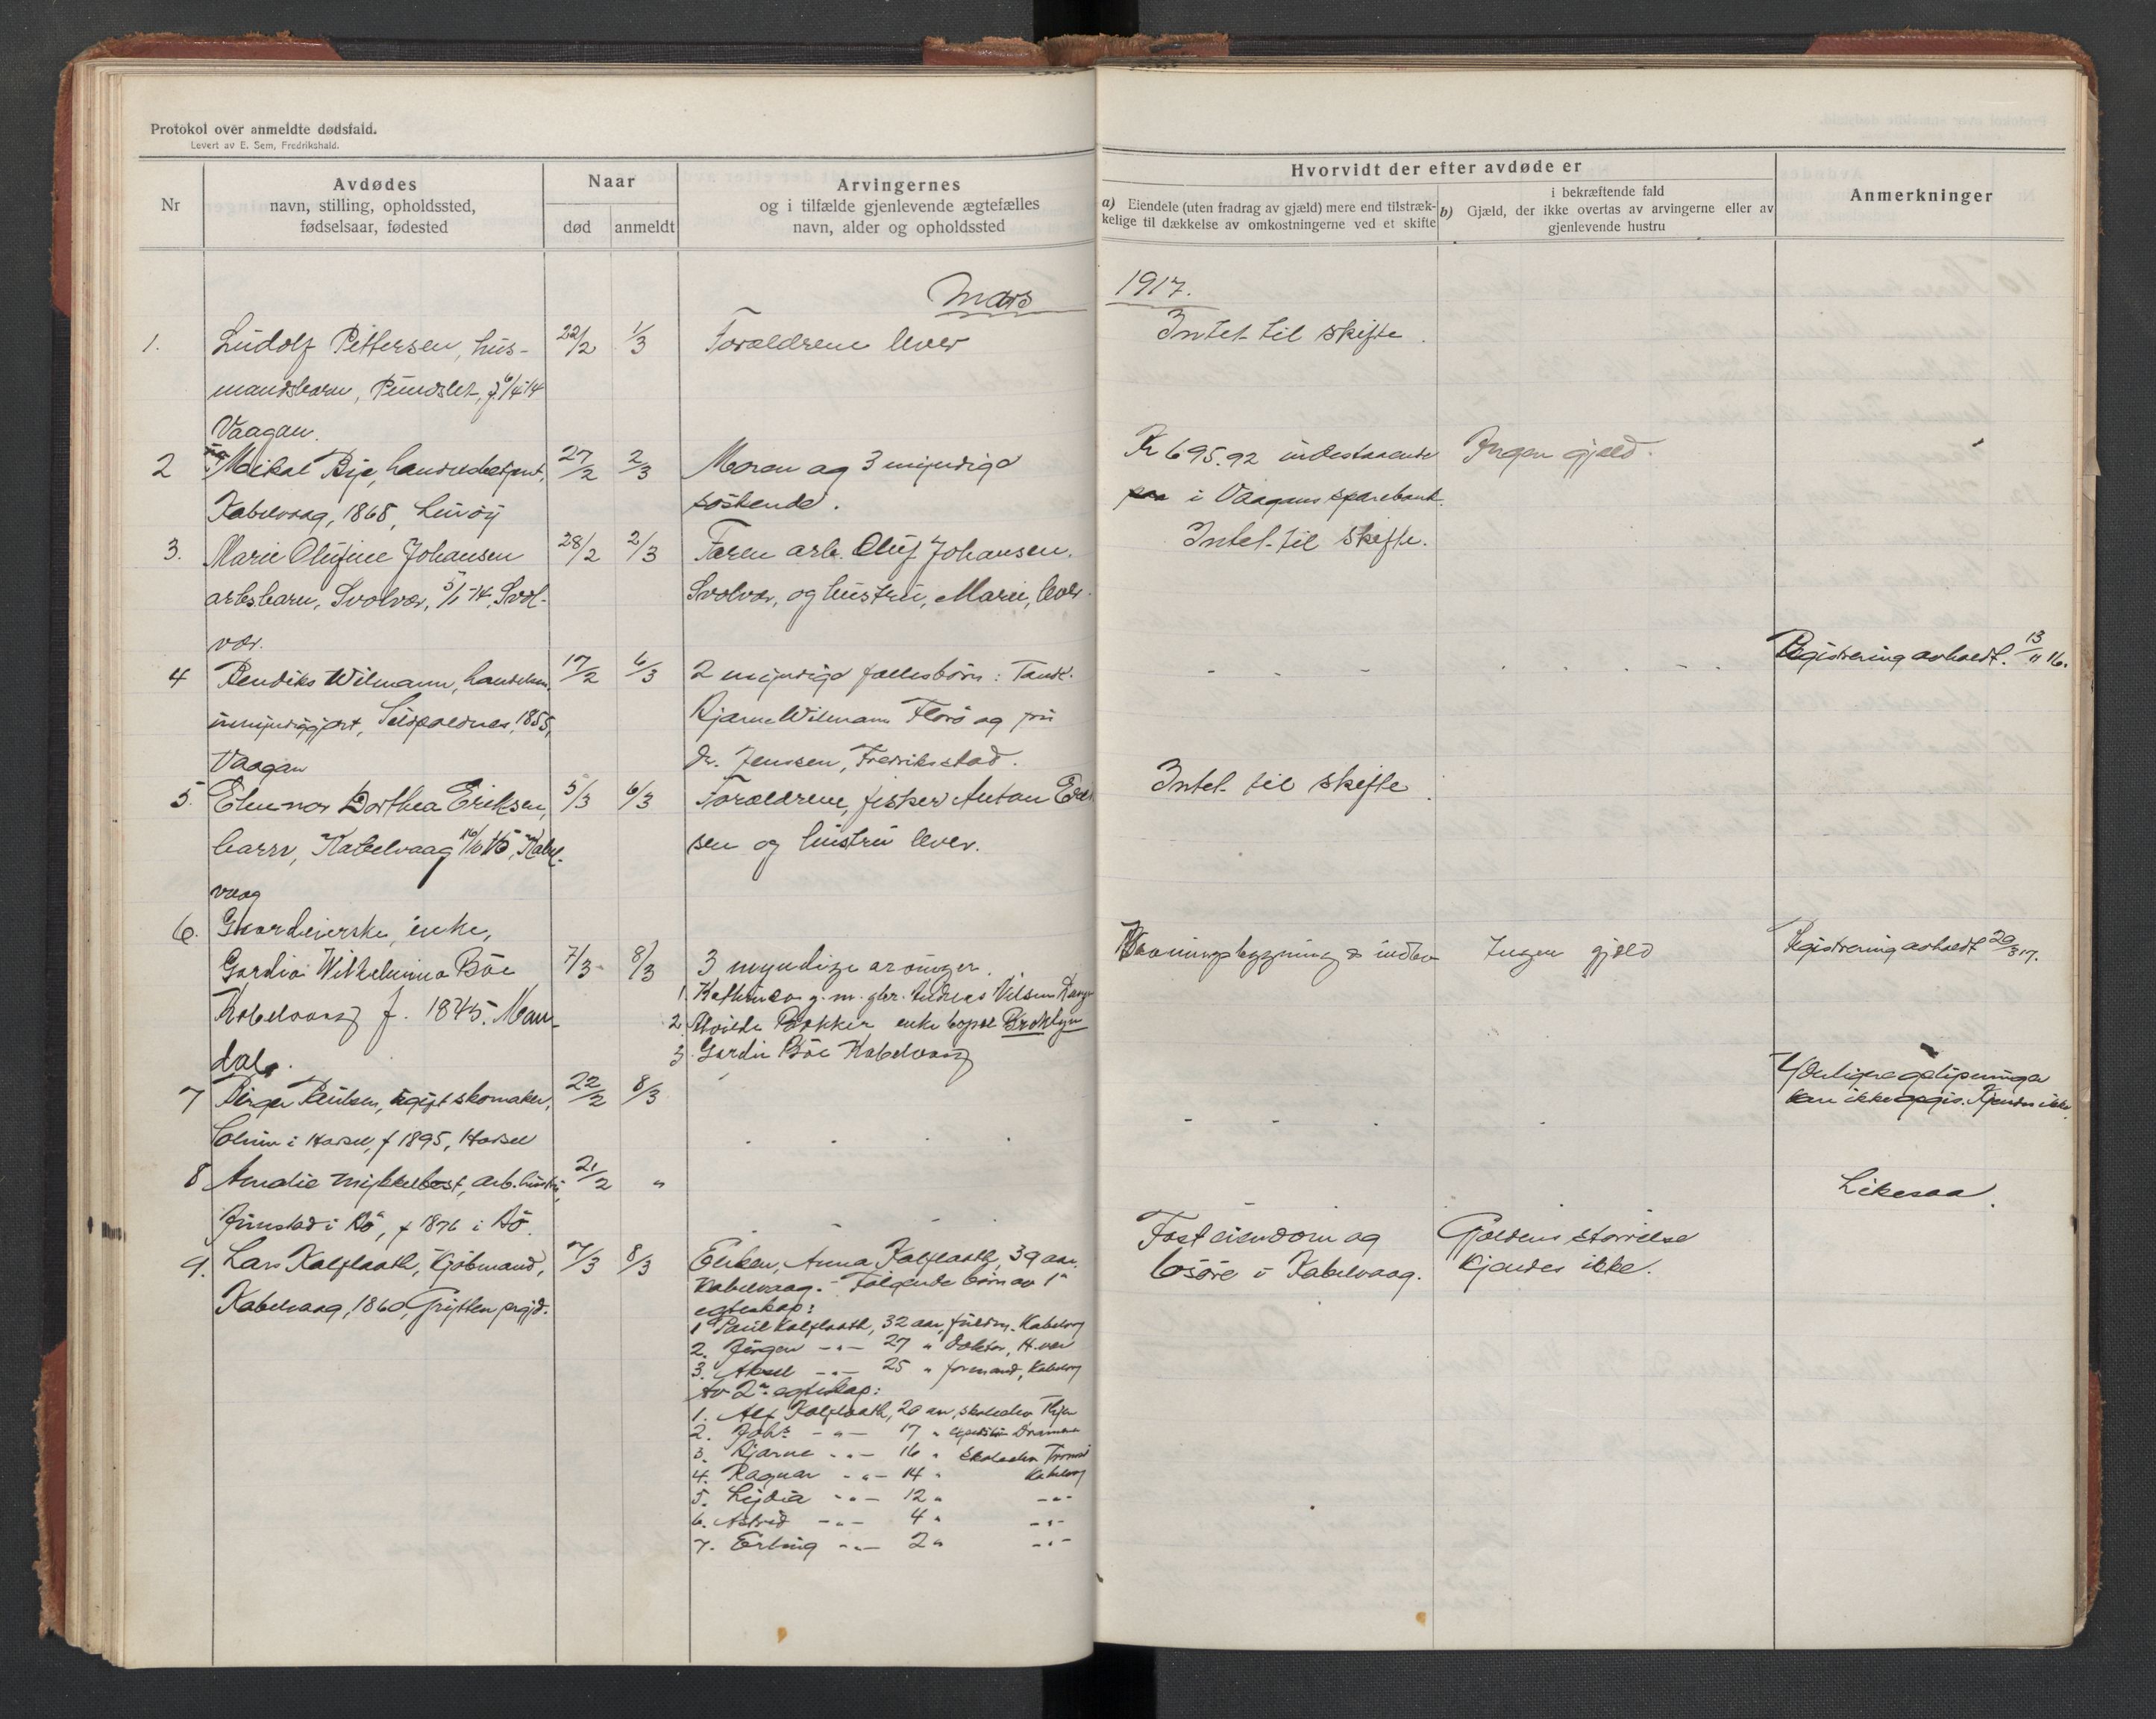 Protokol over anmeldte dødsfald.
Levert av E. Sem, Fredrikshald.
Nr
Avdødes
navn, stilling, opholdssted,
fødselsaar, fødested
Naar
død
anmeldt
Arvingernes
og i tilfælde gjenlevende ægtefælles
navn, alder og opholdssted
Hvorvidt der efter avdøde er
a) Eiendele (uten fradrag av gjæld) mere end tilstræk-
kelige til dækkelse av omkostningerne ved et skifte
i bekræftende fald
b) Gjæld, der ikke overtas av arvingerne eller av
gjenlevende hustru
Anmerkninger
Mars 1917.
1. Ludolf Pettersen, hus- 22/2 1/3 Forældrene lever Intet til skifte.
mandsbarn, Pundslet, f. 6/4 14
Vaagan.
2 Mikal Bje, handelsbetjent, 27/2 2/3 Moren og 3 myndige Kr 695.92 indestaaende Ingen gjæld.
Kabelvaag, 1868, søskende. i Vaagans sparebank.
3. Marie Olufine Johansen 28/2 2/3 Faren arb. Oluf Johansen, Intet til skifte.
arbsbarn, Svolvær, 5/1-14, Svol- Svolvær, og hustru, Marie, lever.
vær.
4 Bendiks Wilmann, handelsm. 17/2 6/3 2 myndige fællesbörn: Tandl. Registrering avholdt. 13/11 16.
umyndiggjort, 1855, Bjarne Wilmann Florö og fru
Vaagan dr. Jenssen, Fredriksstad.
5. Ellinor Dorthea Eriksen, 5/3 6/3 Forældrene, fisker Anton Erik Intet til skifte.
barn, Kabelvaag 16/10 16, Kabel- sen og hustru lever.
vaag
6. Gaardeierske, enke,
Gardia Wilhelmina Böe 7/3 8/3 3 myndige arvinger. Vaaningsbygning & indbo Ingen gjæld Registrering avholdt 20/3 17.
Kabelvaag f. 1845. Man- 1. Kathinca g. m. gbr. Andreas Nilsen
dal. 2. Bakker enke bopæl Broklyn
3. Gardie Böe Kabelvaag
7 Birger Paulsen, ugift skomaker, 22/2 8/3 Yderligere oplysninger
i Hassel, f 1895, Hassel kan ikke opgis. Kjendes ikke
8 Amalie Myklebost, arb.hustru, 21/2 " Likesaa.
i Bö, f 1876 i Bö.
9. Lars Kalflaath, Kjöbmand, 7/3 8/3 Enken, Anna Kalflaath, 39 aar, Fast eiendom og Gjældens störrelse
Kabelvaag, 1860, Grytten prgjd. Kabelvaag. - Fölgende börn av 1ste lösöre i Kabelvaag. kjendes ikke.
egteskap:
1 Paul Kalflaath, 32 aar, fuldm. Kabelvag
2. Jörgen -"- 27 " Doktor,
3. Aksel -"- 25 " formand, Kabelvag
Av 2det egteskap:
1. Alf Kalflaath, 20 aar, skoleelev
2. Johs -"- 17 " Drammen
3. Bjarne -"- 16 " Skoleelev Tromsö
4. Ragnar -"- 14 " Kabelvag
5. Lydia -"- 12 " -"-
6. Astrid -"- 4 " -"-
7. Erling -"- 2 " -"-